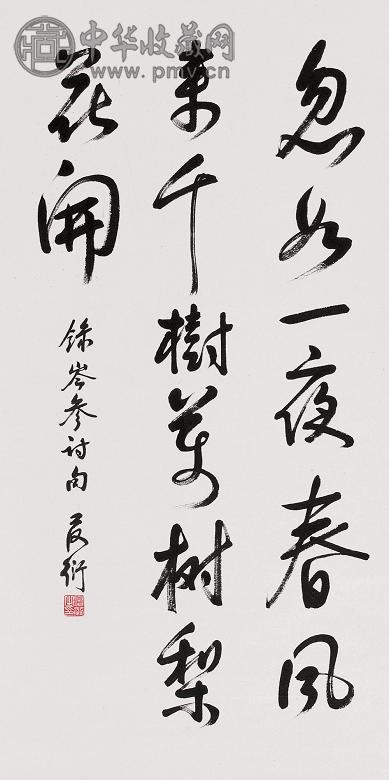 中华收藏网
www.pmv.cn
忽如一夜春风
来千樹萬树梨
花開
録岑参诗句 夏衍